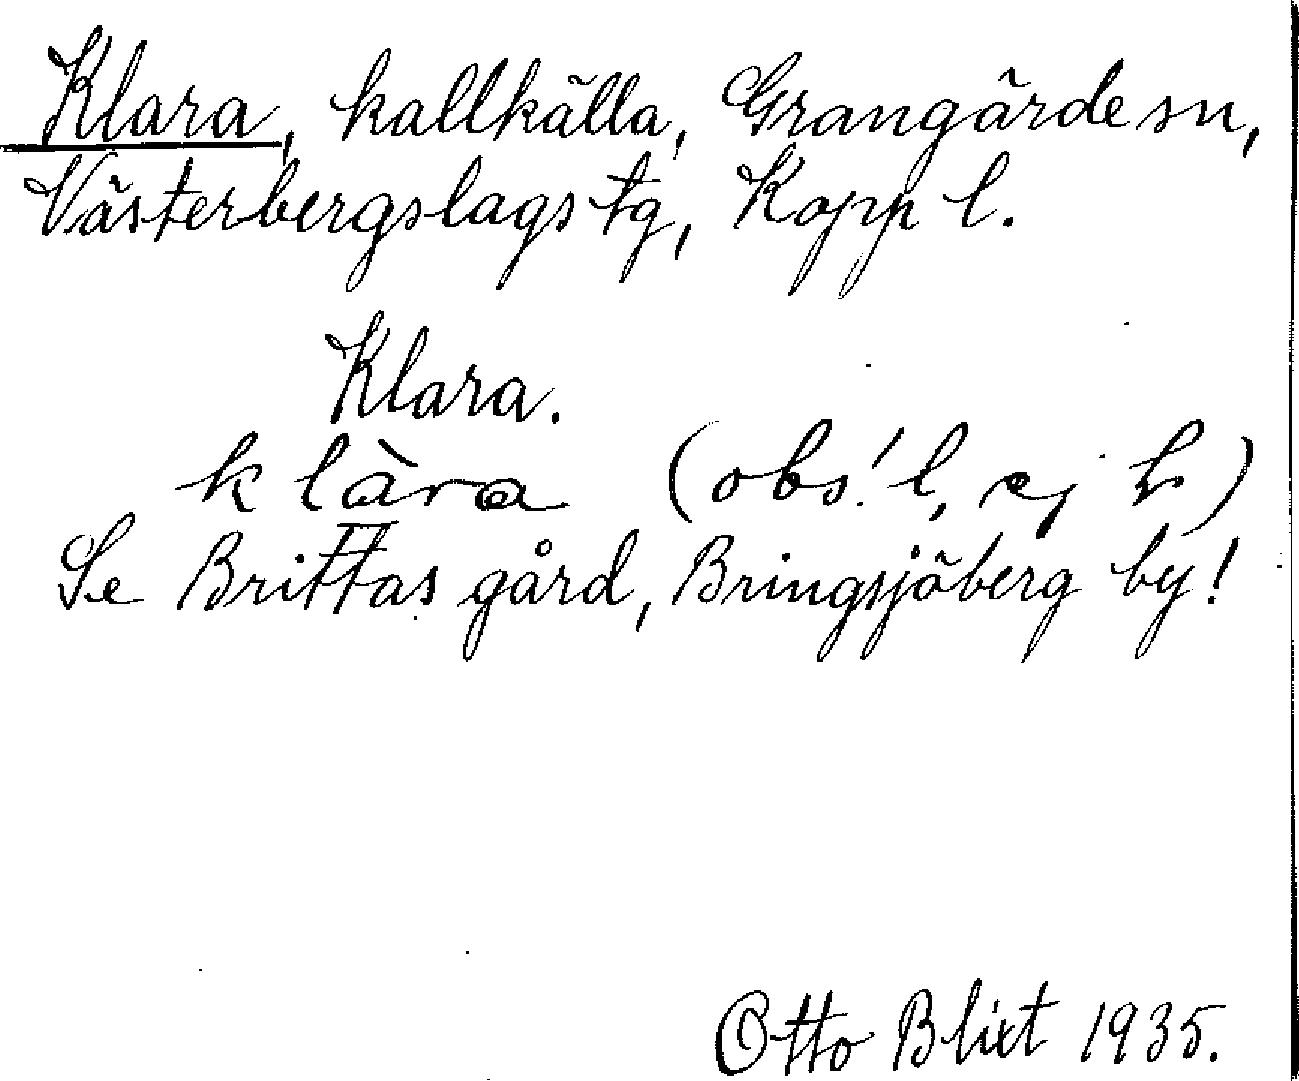 Klara, kallkälla, Grangärde sn,
Västerbergslags tg, Kopp l.
Klara.
klàra (obs! l, ej )
Se Brittas gård, Bringsjöberg by!
Otto Blixt 1935.